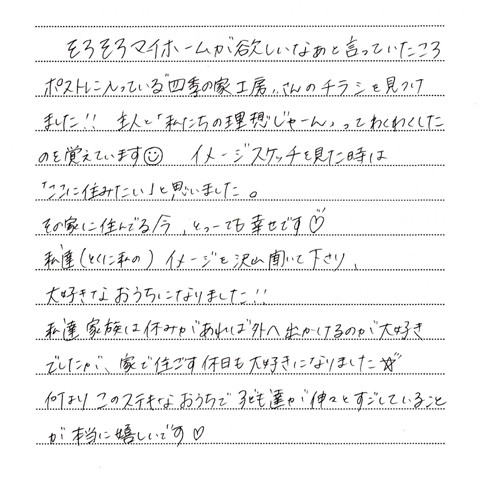 そろそろマイホームが欲しいなぁと言っていたころ
ポストに入っている"四季の家工房"さんのチラシを見つけ
ました!! 主人と「私たちの理想じゃーん」ってわくわくした
のを覚えています☺ イメージスケッチを見た時は
「ここに住みたい」と思いました。
その家に住んでる今、とっーても幸せです♡
私達(とくに私の)イメージを沢山聞いて下さり、
大好きなおうちになりました!!
私達家族は休みがあれば外へ出かけるのが大好き
でしたが、家で住ごす休日も大好きになりました☆
何よりこのステキなおうちで子ども達が伸々とすごしていること
が本当に嬉しいです♡